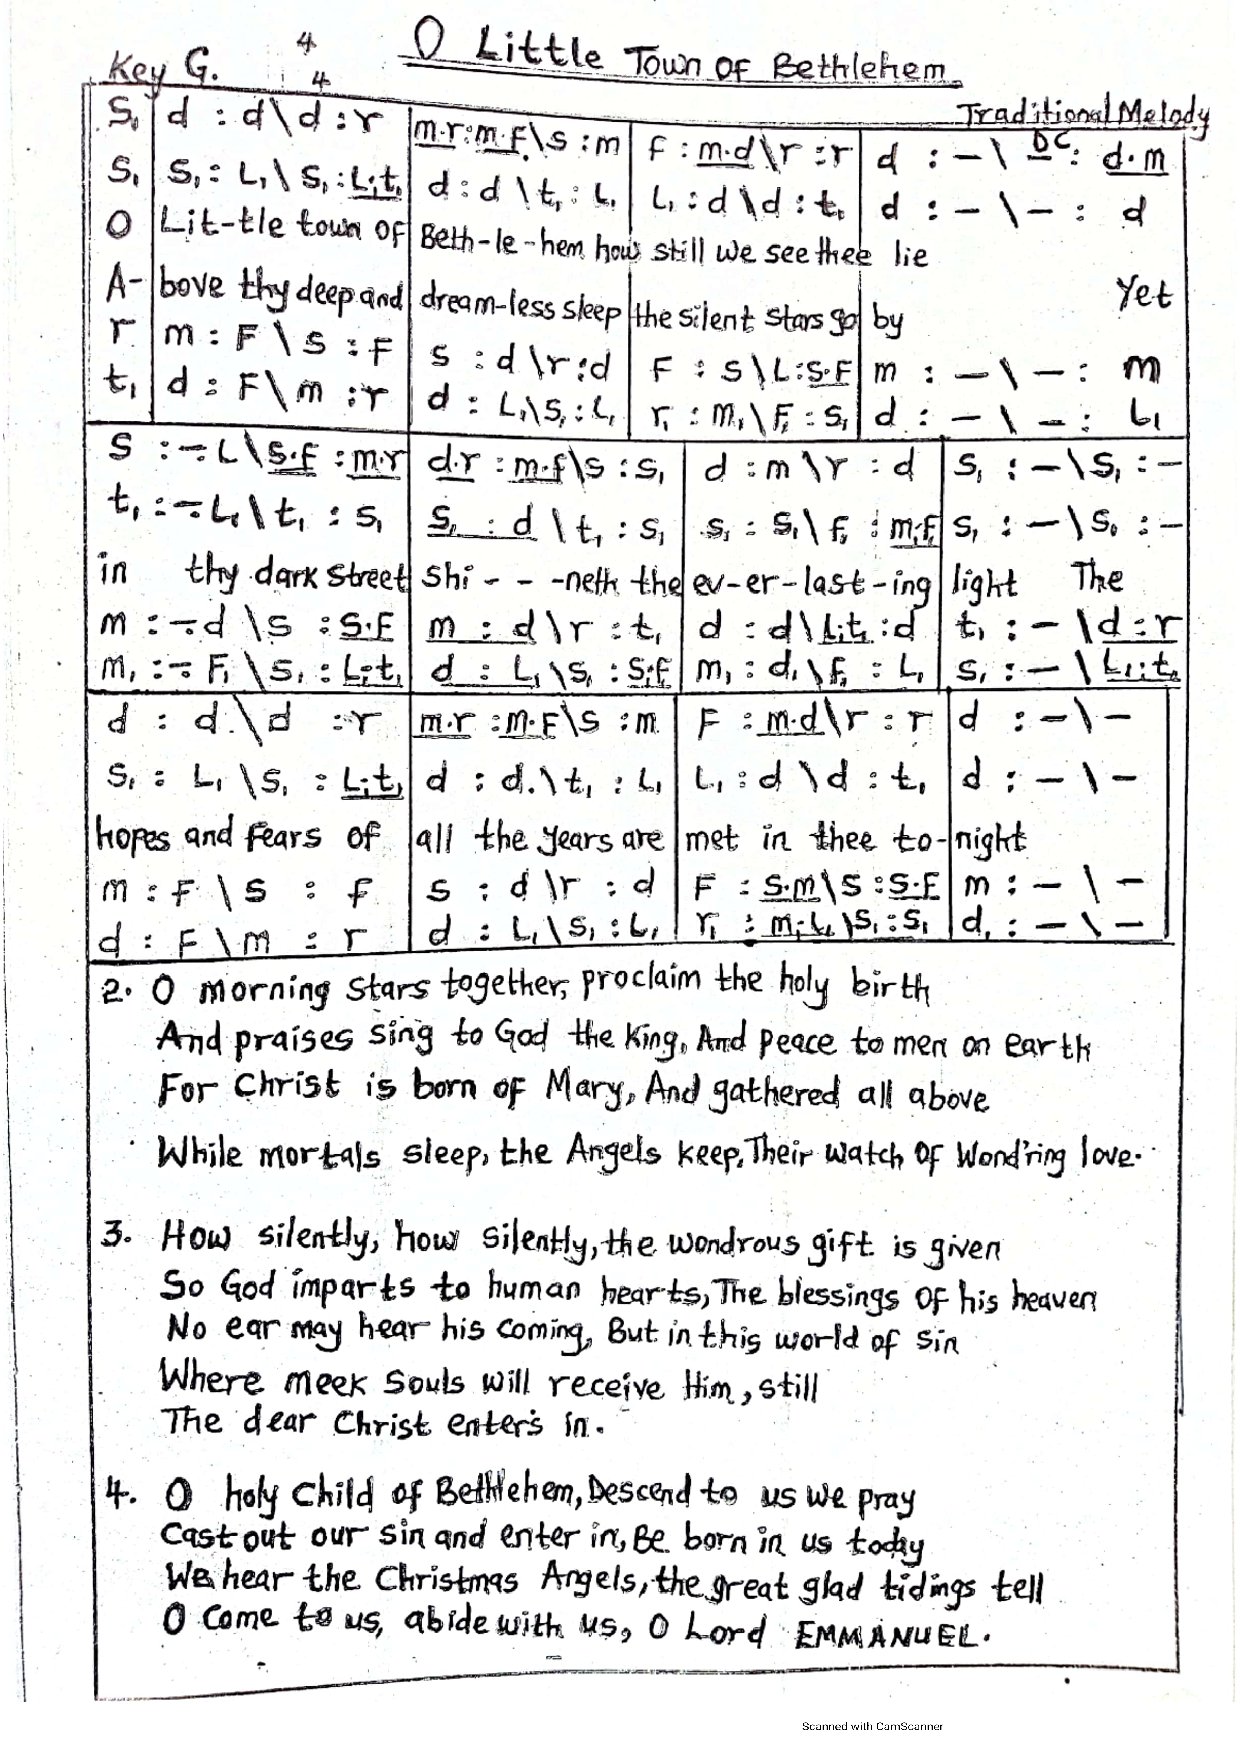 O Little Town Of Bethlehem
Key G. 4/4
Traditional Melody
S₁ | d : d \ d : r | m.r : m.F \ s : m | F : m.d \ r : r | d : – \ DC : d.m
S₁ | S₁ : L₁ \ S₁ : L₁.t₁ | d : d \ t₁ : L₁ | L₁ : d \ d : t₁ | d : – \ – : d
O | Lit-tle town of | Beth-le-hem how | still we see thee | lie
A- | bove thy deep and | dream-less sleep | the silent stars go | by Yet
r | m : F \ s : F | s : d \ r : d | F : s \ L : s.F | m : – \ – : m
t₁ | d : F \ m : r | d : L₁ \ S₁ : L₁ | r₁ : m₁ \ F₁ : S₁ | d : – \ – : L₁
s : – L \ s.F : m.r | d.r : m.f \ s : s₁ | d : m \ r : d | S₁ : – \ S₁ : –
t₁ : – L₁ \ t₁ : s₁ | S₁ : d \ t₁ : s₁ | s₁ : s₁ \ f₁ : m₁.F₁ | S₁ : – \ S₁ : –
in thy dark street | shi - - -neth the | ev-er-last-ing | light The
m : – d \ s : s.F | m : d \ r : t₁ | d : d \ L₁.t₁ : d | t₁ : – \ d : r
m₁ : – F₁ \ S₁ : L₁.t₁ | d : L₁ \ S₁ : S₁.F₁ | m₁ : d₁ \ F₁ : L₁ | S₁ : – \ L₁ : t₁
d : d \ d : r | m.r : m.F \ s : m | F : m.d \ r : r | d : – \ –
S₁ : L₁ \ S₁ : L₁.t₁ | d : d. \ t₁ : L₁ | L₁ : d \ d : t₁ | d : – \ –
hopes and fears of | all the years are | met in thee to- | night
m : F \ s : f | s : d \ r : d | F : s.m \ s : s.F | m : – \ –
d : F \ m : r | d : L₁ \ S₁ : L₁ | r₁ : m₁.L₁ \ S₁ : S₁ | d₁ : – \ –
2. O morning stars together, proclaim the holy birth
And praises sing to God the King, And peace to men on earth
For Christ is born of Mary, And gathered all above
While mortals sleep, the Angels keep, Their watch Of Wond'ring love.
3. How silently, how silently, the wondrous gift is given
So God imparts to human hearts, The blessings Of his heaven
No ear may hear his coming, But in this world of sin
Where meek souls will receive Him, still
The dear Christ enters in.
4. O holy Child of Bethlehem, Descend to us we pray
Cast out our sin and enter in, Be born in us today
We hear the Christmas Angels, the great glad tidings tell
O come to us, abide with us, O Lord EMMANUEL.
Scanned with CamScanner